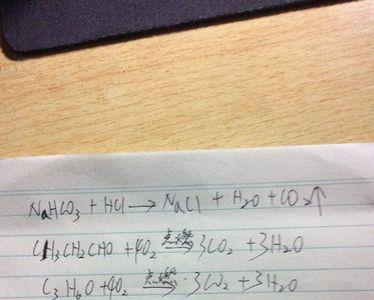 NaHCO₃ + HCl → NaCl + H₂O + CO₂↑
CH₃CH₂CHO + 4O₂ 点燃→ 3CO₂ + 3H₂O
C₃H₆O + 4O₂ 点燃→ 3CO₂ + 3H₂O